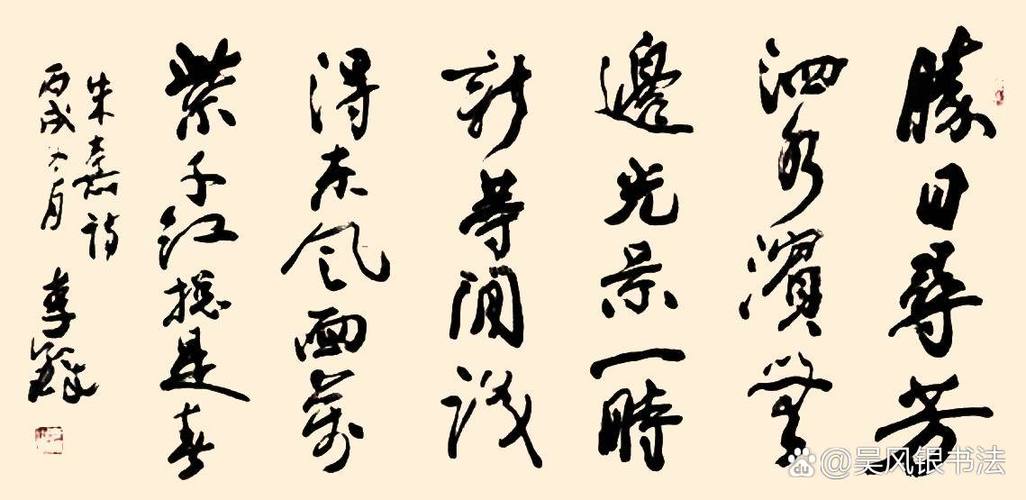 勝日尋芳
泗水濱無
邊光景一時
新等閒識
得東風面萬
紫千紅總是春
朱熹詩
丙戌月 李鐸
@吴风银书法